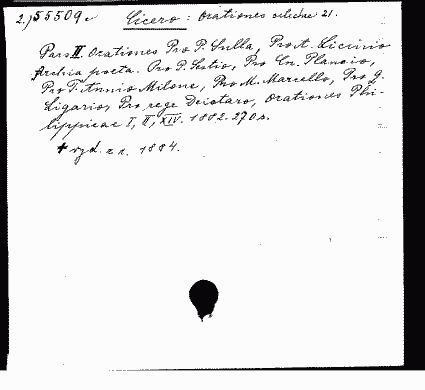 2.) 55509 c Cicero: Orationes selectae 21.
Pars II. Orationes Pro P. Sulla, Pro A. Licinio
Archia poeta. Pro P. Sestio, Pro Cn. Plancio,
Pro T. Annio Milone, Pro M. Marcello, Pro Q.
Ligario, Pro rege Deiotaro, Orationes Phi-
lippicae I, II, XIV. 1882. 270 s.
+ wyd. z r. 1884.